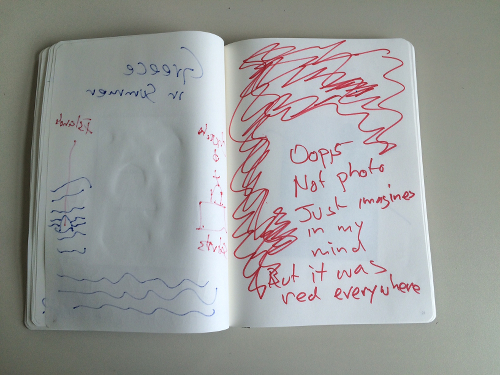 Greece
in Summer
Islands
Oops
Not photo
Just imagines
in my
mind
But it was
red everywhere